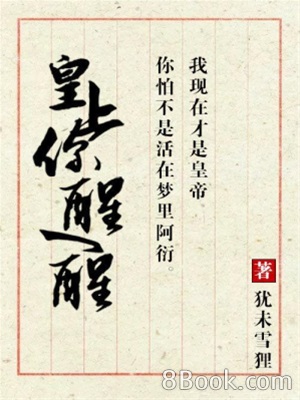 皇上你醒醒
我现在才是皇帝。
你怕不是活在梦里阿衍。
著
犹未雪狸
8Book.com